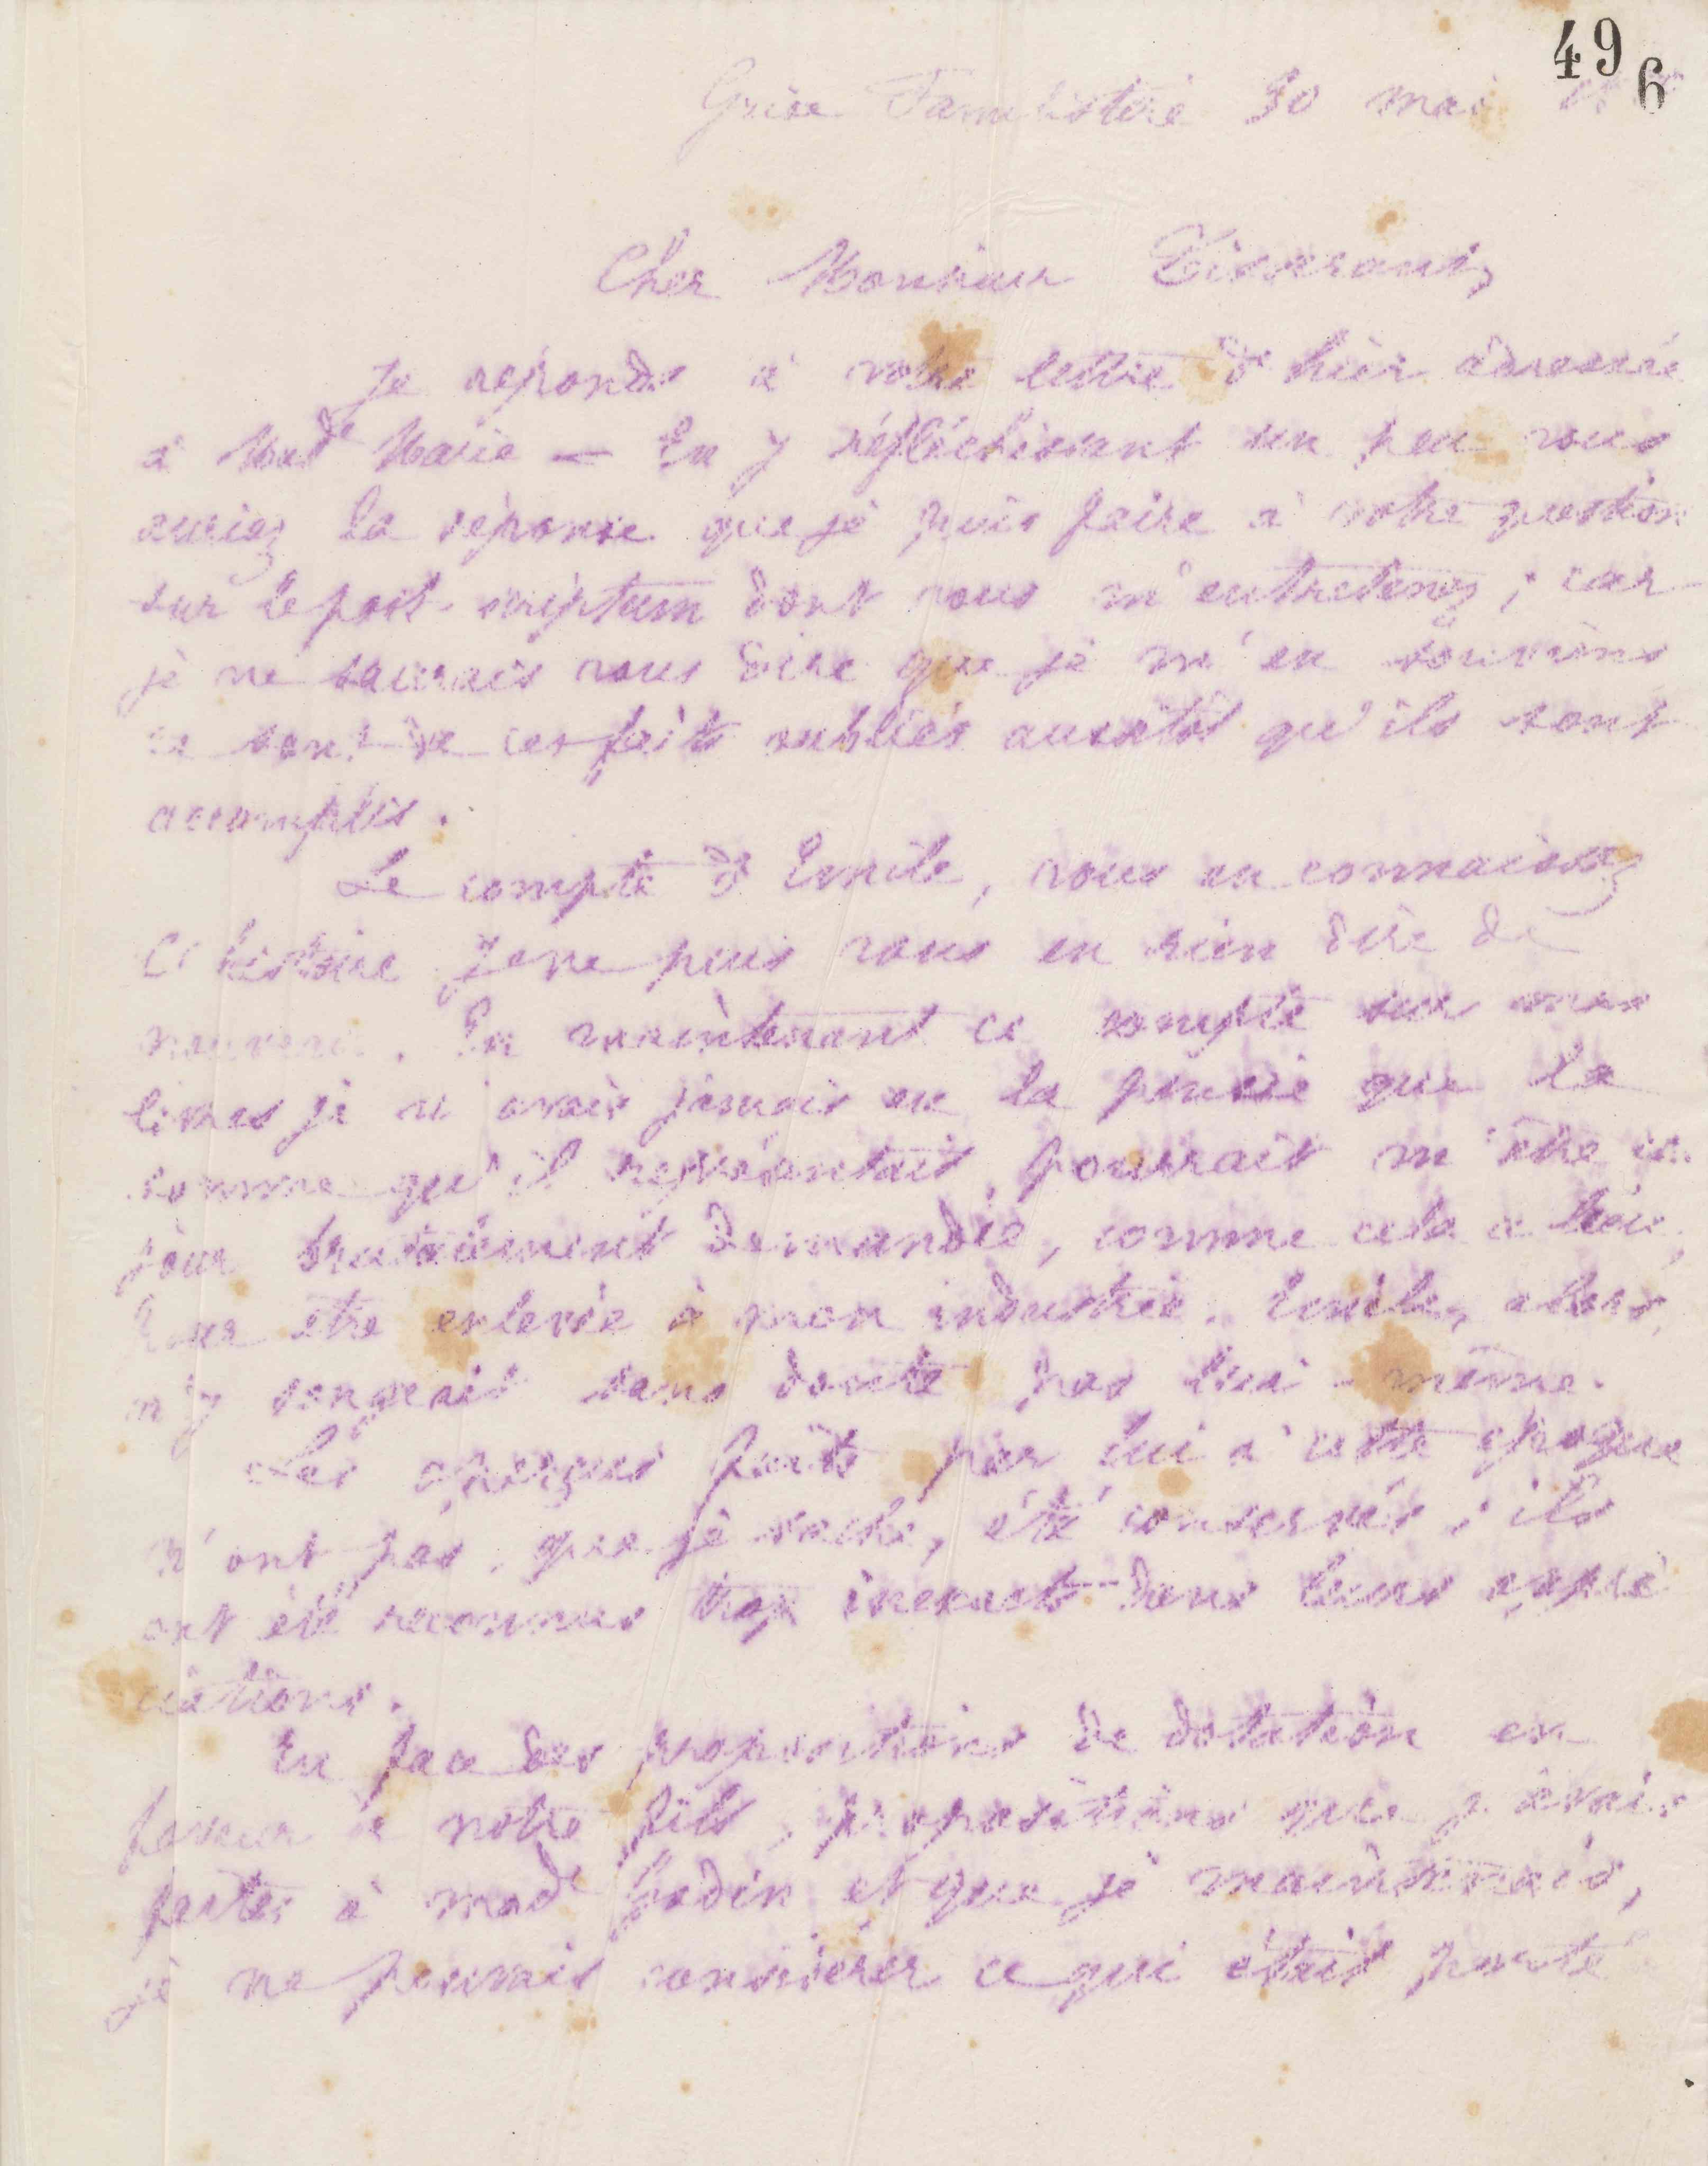 49 6
Guise Familistère 30 mai
Cher Monsieur Tisserant,
Je réponds à votre lettre d'hier adressée
à Mad^e Marie — En y réfléchissant un peu vous
auriez la réponse que je puis faire à votre question
sur le post-scriptum dont vous m'entretenez ; car
je ne saurais vous dire que je m'en souviens
ce sont de ces faits oubliés aussitôt qu'ils sont
accomplis.
Le compte d'Emile, vous en connaissez
l'histoire je ne puis vous en rien dire de
nouveau. En maintenant ce compte sur mes
livres je n'avais jamais eu la pensée que la
somme qu'il représentait, pourrait m'être un
jour brusquement demandée, comme cela a lieu,
pour être enlevée à mon industrie. Emile, alors,
n'y songeait sans doute pas lui-même.
Les aperçus faits par lui à cette époque
n'ont pas, que je sache, été conservés ; ils
ont été reconnus trop inexacts dans leurs appré
ciations.
En face des propositions de dotation en
faveur de notre fils, propositions que j'avais
faites à mad^e Godin et que je maintenais,
je ne pouvais considérer ce qui était porté